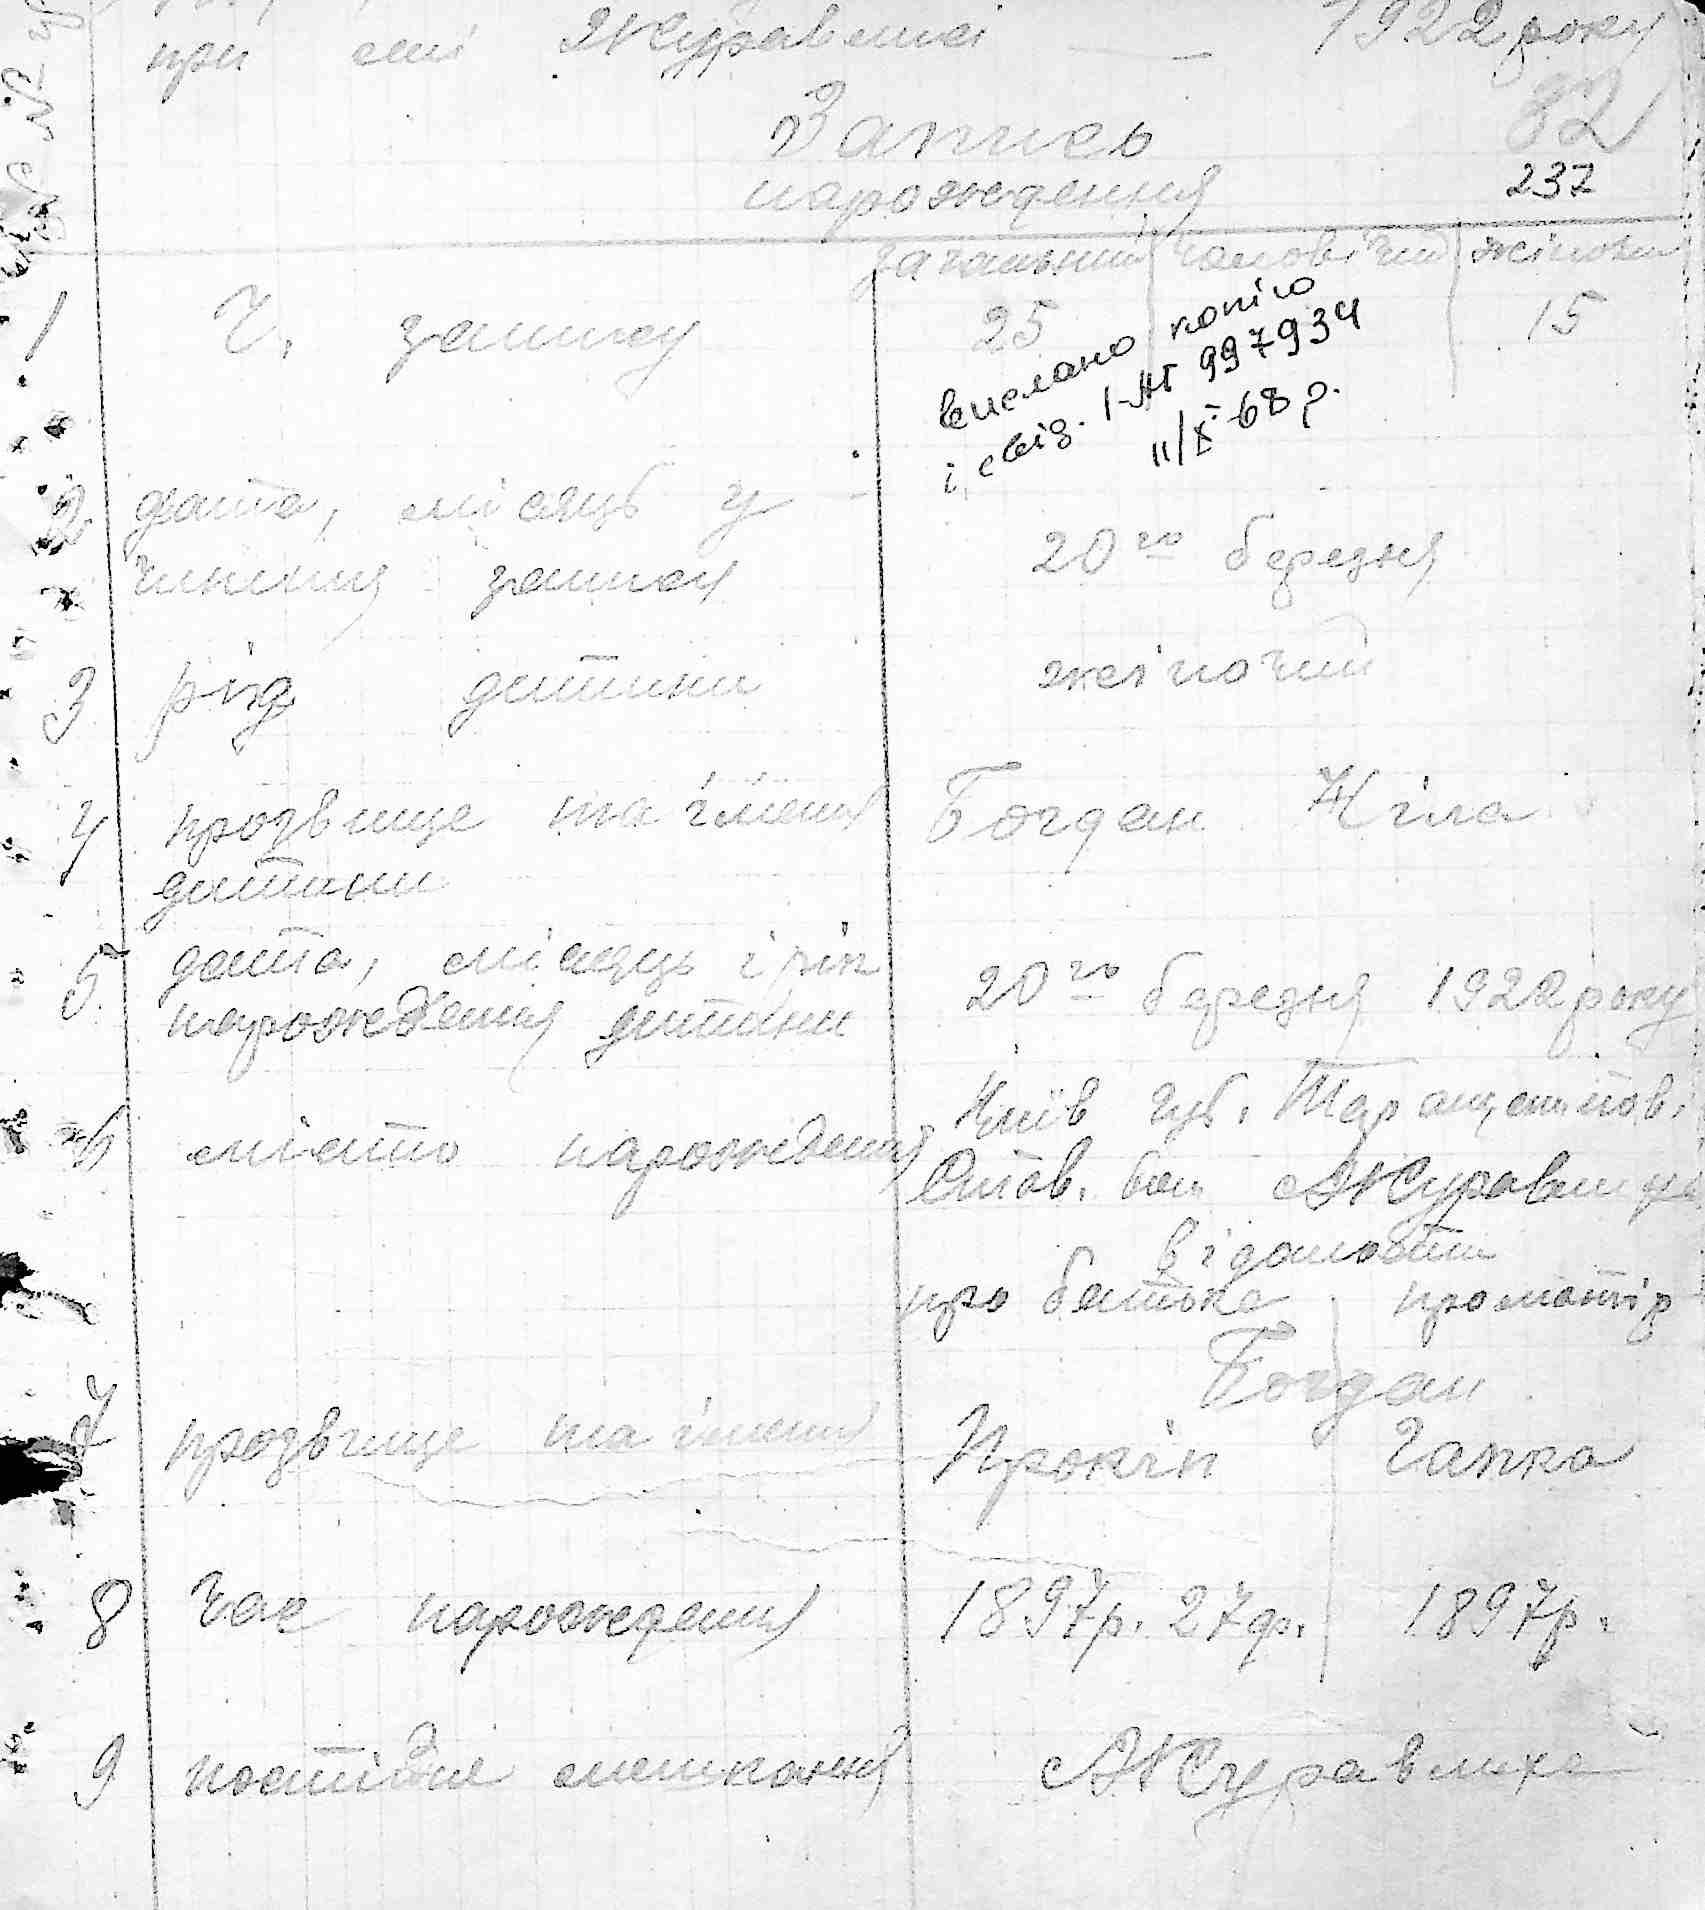 при селі Журавлисі — 1922 року
Запись
82
народження
237
загальний чоловічий жіночий
1 Ч. запису 25 15
вислано копію
і свід. І-АГ 997934
11/X-68 р.
2 дата, місяць у
чинения запису 20го березня
3 рід дитини жіночий
4 прозвище та імення Богдан Ніла
дитини
5 дата, місяць і рік
народження дитини 20го березня 1922 року
Київ губ. Таращан. пов.
6 місто народження Став. вол. Журавлиха
відомости
про батька про матір
Богдан
7 прозвище та імення Прокіп Гапка
8 час народження 1897р. 27 р. 1897р.
9 постійне мешкання Журавлиха